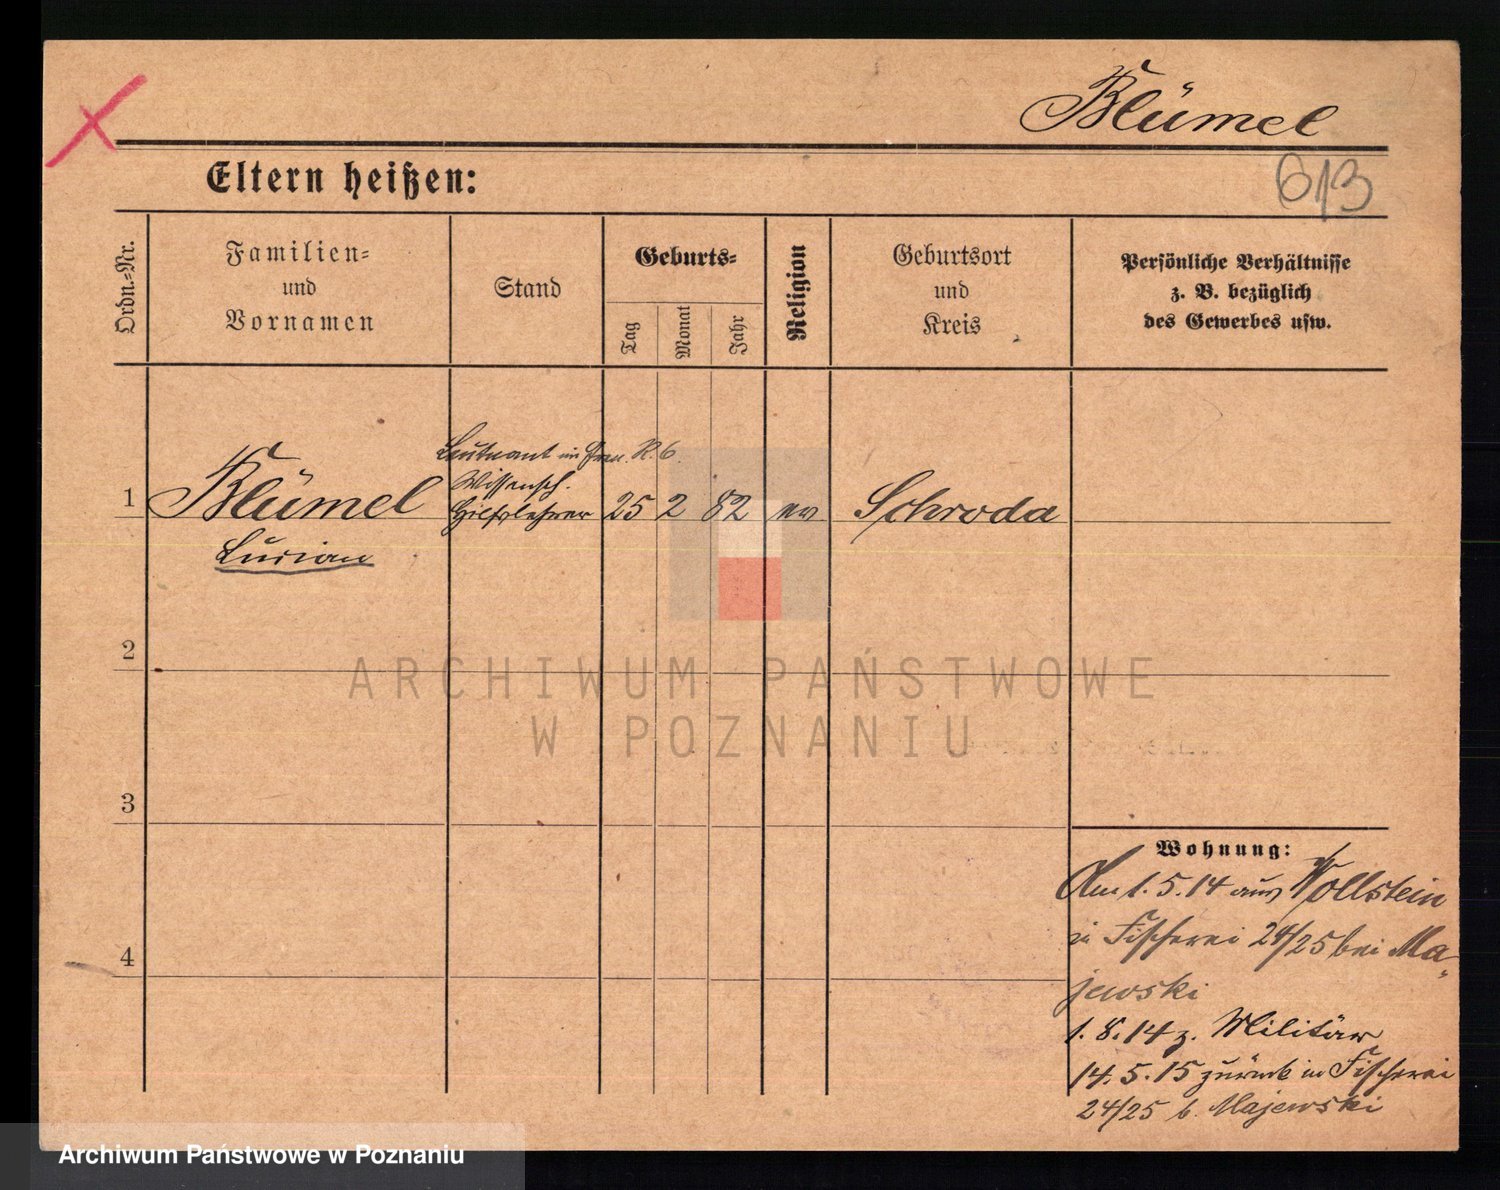 Blümel
613
Eltern heißen:
Ordn.-Nr.
Familien-
und
Vornamen
Stand
Geburts-
Tag
Monat
Jahr
Religion
Geburtsort
und
Kreis
Persönliche Verhältnisse
z. B. bezüglich
des Gewerbes usw.
Leutnant im R. 6.
Wissensch.
1 Blümel Hilfslehrer 25 2 82 ev Schroda
Lucian
2
3
4
Wohnung:
Am 1.5.14 aus Wollstein
in Fischerei 24/25 bei Ma-
jewski
1.8.14 z. Militär
14.5.15 zurück in Fischerei
24/25 b. Majewski
ARCHIWUM PAŃSTWOWE
W POZNANIU
Archiwum Państwowe w Poznaniu